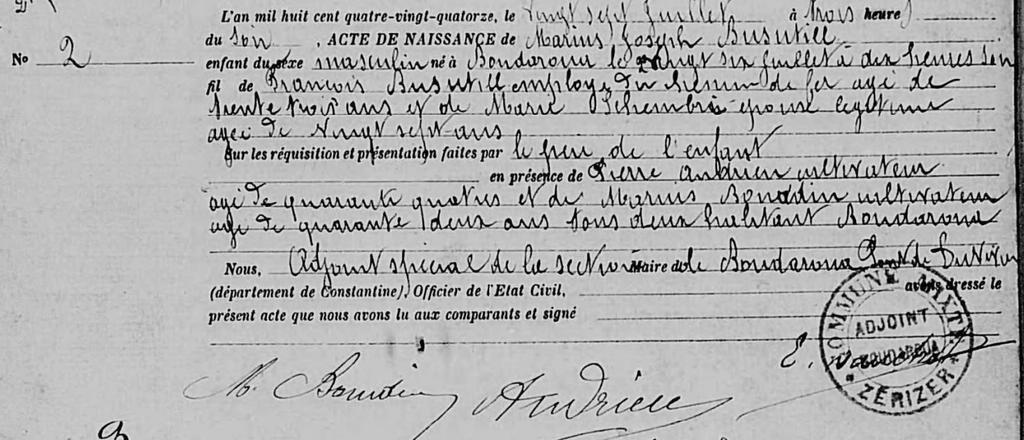 L'an mil huit cent quatre-vingt-quatorze, le vingt sept Juillet à trois heures
du soir, ACTE DE NAISSANCE de Marius Joseph Busutill
No 2
enfant du sexe masculin né à Boudaroua le vingt six Juillet à dix heures soir
fil de François Busutill employé du chemin de fer agé de
trente trois ans et de Marie Schembri épouse légitime
agée de vingt sept ans
Sur les réquisition et présentation faites par le père de l'enfant
en présence de Pierre Andrieu cultivateur
agé de quarante quatre et de Marius Bouddin cultivateur
agé de quarante deux ans tous deux habitant Boudaroua
Nous, Adjoint spécial de la section Maire de de Boudaroua
(département de Constantine), Officier de l'Etat Civil, avons dressé le
présent acte que nous avons lu aux comparants et signé
COMMUNE MIXTE
ADJOINT
BOUDAROUA
ZERIZER
M. Bouddin Andrieu E.